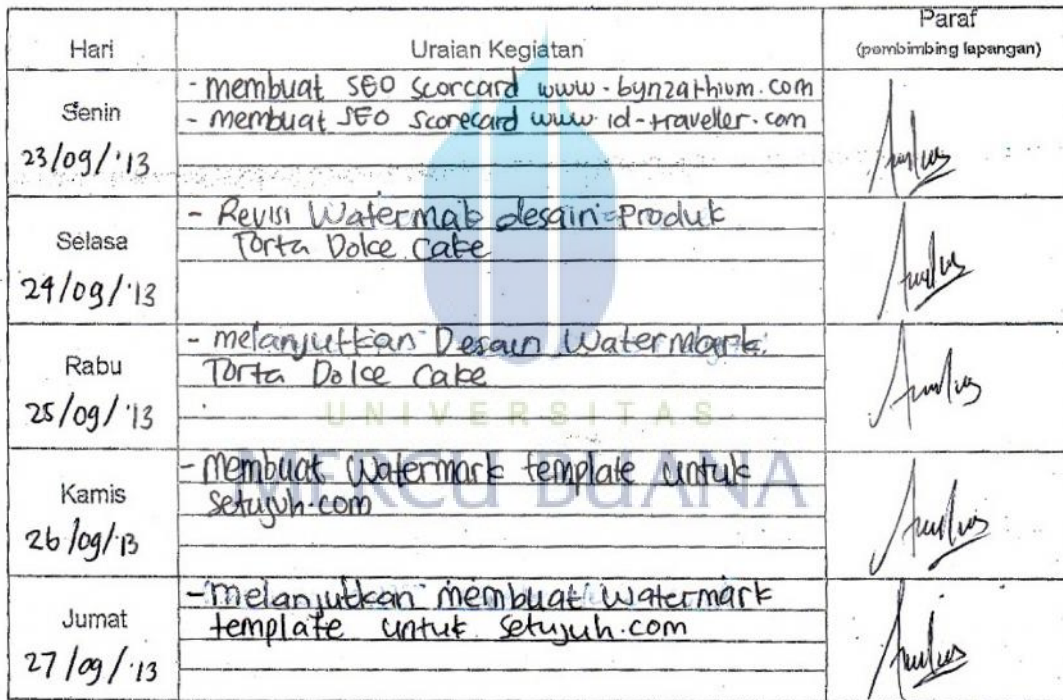 Hari Uraian Kegiatan Paraf
(pembimbing lapangan)
Senin
23/09/'13
- membuat SEO scorcard www.bynzathium.com
- membuat SEO scorecard www.id-traveller.com
Selasa
24/09/'13
- Revisi Watermak desain produk
Torta Dolce Cake
Rabu
25/09/'13
- melanjutkan Desain Watermark
Torta Dolce Cake
UNIVERSITAS
MERCU BUANA
Kamis
26/09/13
- Membuat Watermark template untuk
setujuh.com
Jumat
27/09/'13
- melanjutkan membuat watermark
template untuk setujuh.com